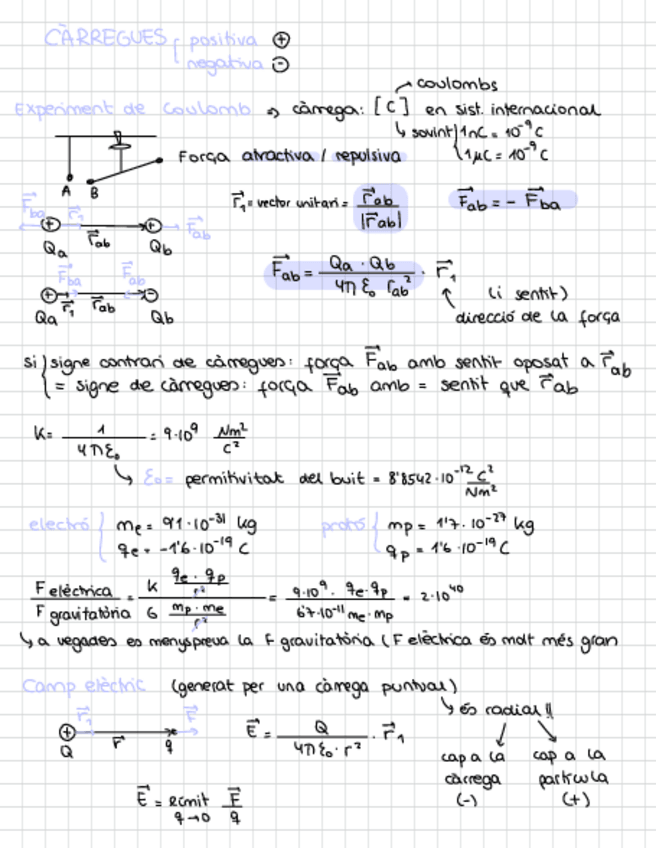 CÀRREGUES { positiva ⊕
negativa ⊖
Experiment de Coulomb ⇒ càrrega: [C] en sist. internacional
coulombs
sovint 1nC = 10⁻⁹ C
1μC = 10⁻⁹ C
Força atractiva / repulsiva
A B
r⃗₁ = vector unitari = r⃗ab / |r⃗ab|
F⃗ab = - F⃗ba
F⃗ba r⃗₁ r⃗ab F⃗ab
Qa Qb
F⃗ab = Qa · Qb / 4π ε₀ rab² · r⃗₁
(i sentit)
direcció de la força
F⃗ba F⃗ab
r⃗₁ r⃗ab
Qa Qb
si { signe contrari de càrregues: força F⃗ab amb sentit oposat a r⃗ab
= signe de càrregues: força F⃗ab amb = sentit que r⃗ab
K = 1 / 4πε₀ = 9·10⁹ Nm²/C²
ε₀ = permitivitat del buit = 8'8542·10⁻¹² C²/Nm²
electró { me = 9'1·10⁻³¹ kg
qe = -1'6·10⁻¹⁹ C
protó { mp = 1'7·10⁻²⁷ kg
qp = 1'6·10⁻¹⁹ C
F elèctrica / F gravitatòria = K qe·qp/r² / G mp·me/r² = 9·10⁹ · qe·qp / 6'7·10⁻¹¹ me·mp = 2·10⁴⁰
↳ a vegades es menyspreua la F gravitatòria (F elèctrica és molt més gran
Camp elèctric (generat per una càrrega puntual)
↳ és radial!!
cap a la càrrega (-)
cap a la partícula (+)
r⃗₁ F⃗
Q r⃗ q
E⃗ = Q / 4πε₀·r² · r⃗₁
E⃗ = límit q→0 F⃗/q